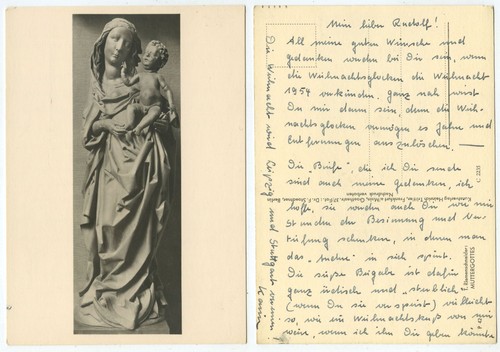 Mein lieber Rudolf!
All meine guten Wünsche und
Gedanken werden bei Dir sein, wenn
die Weihnachtsglocken die Weihnacht
1954 verkünden. Ganz nah wirst
Du mir dann sein, denn die Weih-
nachtsglocken vermögen es Jahre und
Entfernungen auszulöschen. —
Die "Briefe", die ich Dir sende
sind auch meine Gedanken, ich
hoffe, sie werden auch Dir wie mir
Stunden der Besinnung und
schenken, in denen man
das in sich spürt.
Die süße Beigabe ist dafür
ganz irdisch und "sterblich"
(wenn Du sie verspeist) vielleicht
so, wie ein Weihnachtskuß von mir
wäre, wenn ich ihn Dir geben könnte
Die Weihnacht wird Leipzig und Stuttgart vereinen
Karin
MUTTERGOTTES
C 2235